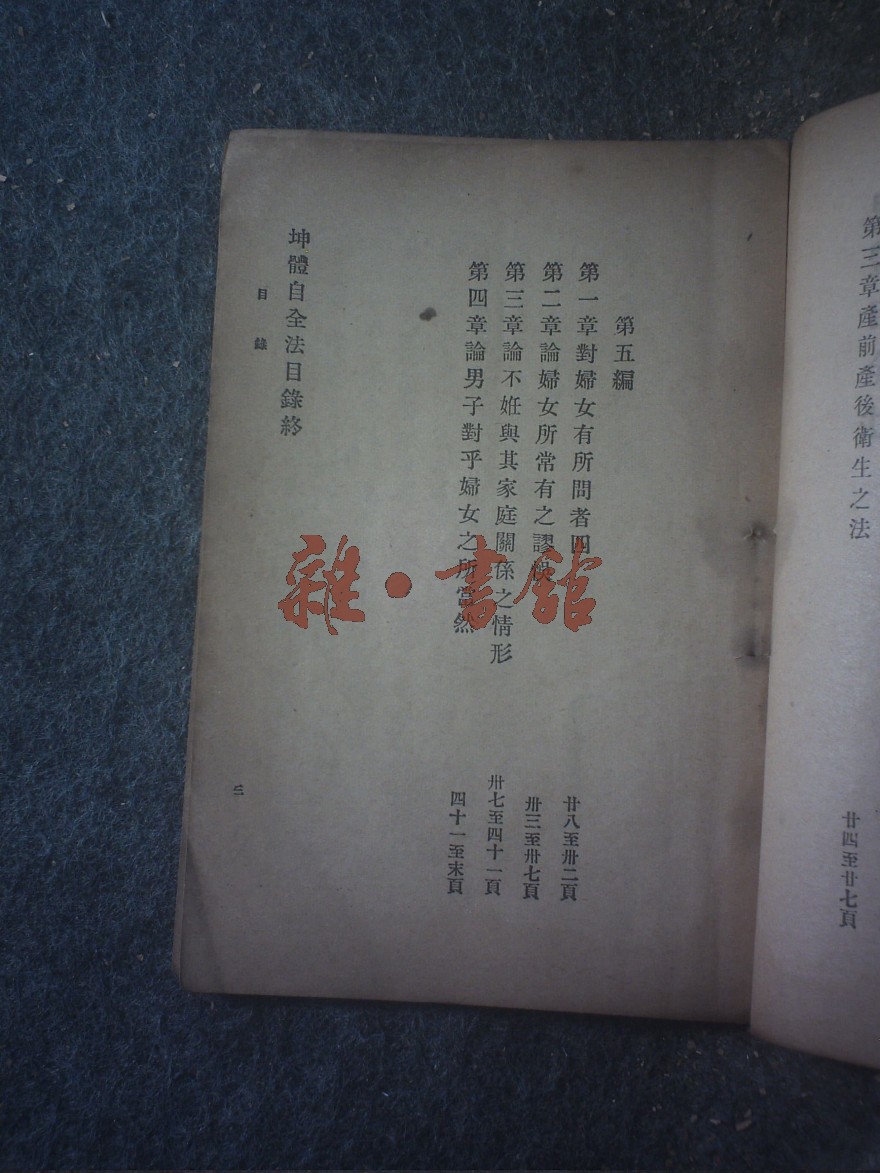 第三章產前產後衛生之法
廿四至廿七頁
第五編
第一章對婦女有所問者四
廿八至卅二頁
第二章論婦女所常有之謬
卅三至卅七頁
第三章論不姙與其家庭關係之情形
卅七至四十一頁
第四章論男子對乎婦女之所當然
四十一至末頁
坤體自全法目錄終
目錄
雜·書館